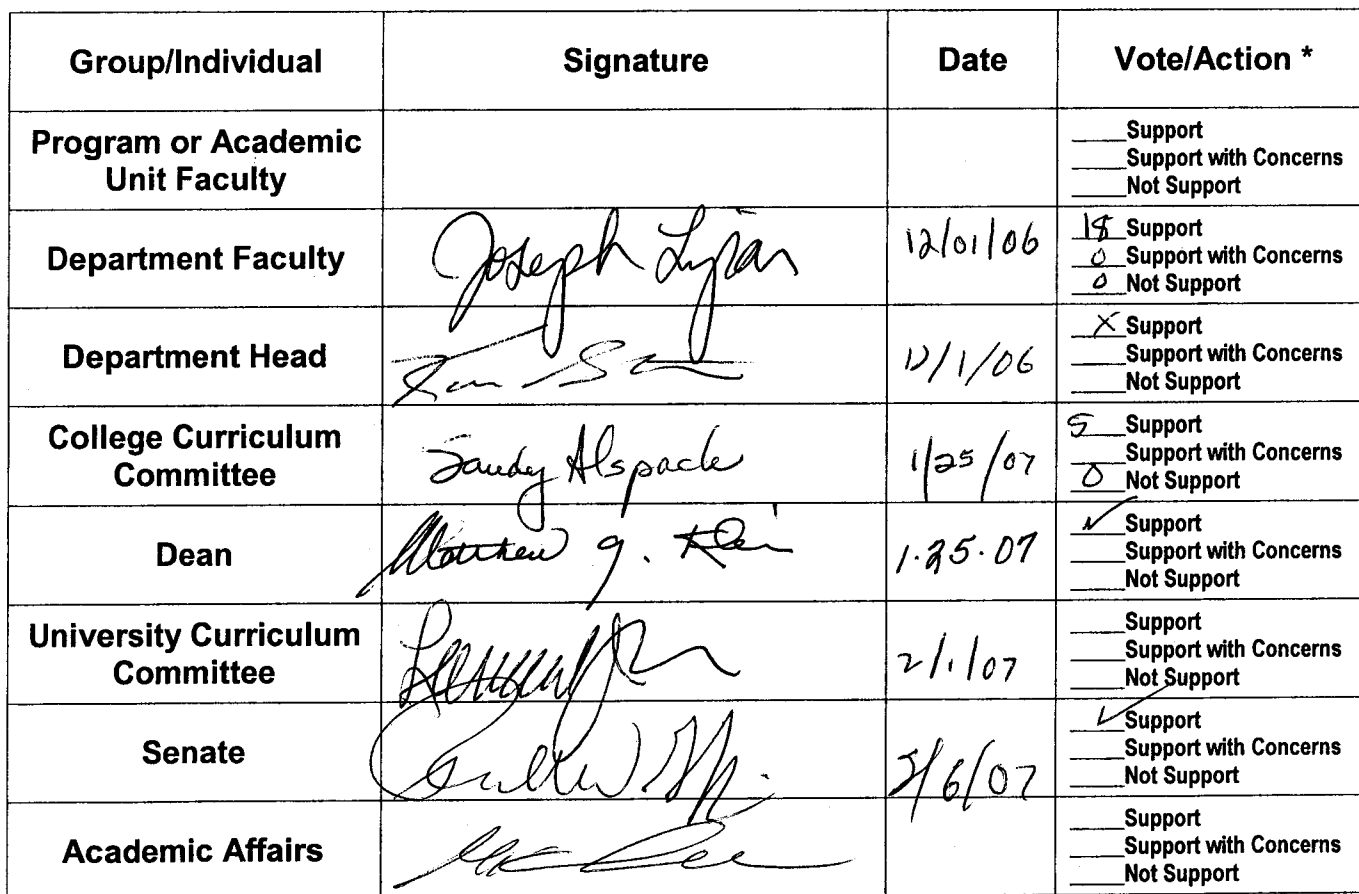 Group/Individual Signature Date Vote/Action *
Program or Academic Unit Faculty
____Support
____Support with Concerns
____Not Support
Department Faculty Joseph Lipar 12/01/06
18 Support
0 Support with Concerns
0 Not Support
Department Head 12/1/06
X Support
____Support with Concerns
____Not Support
College Curriculum Committee Sandy Alspach 1/25/07
5 Support
____Support with Concerns
0 Not Support
Dean Matthew g. Klein 1.25.07
✓ Support
____Support with Concerns
____Not Support
University Curriculum Committee 2/1/07
____Support
____Support with Concerns
____Not Support
Senate /6/07
✓ Support
____Support with Concerns
____Not Support
Academic Affairs
____Support
____Support with Concerns
____Not Support